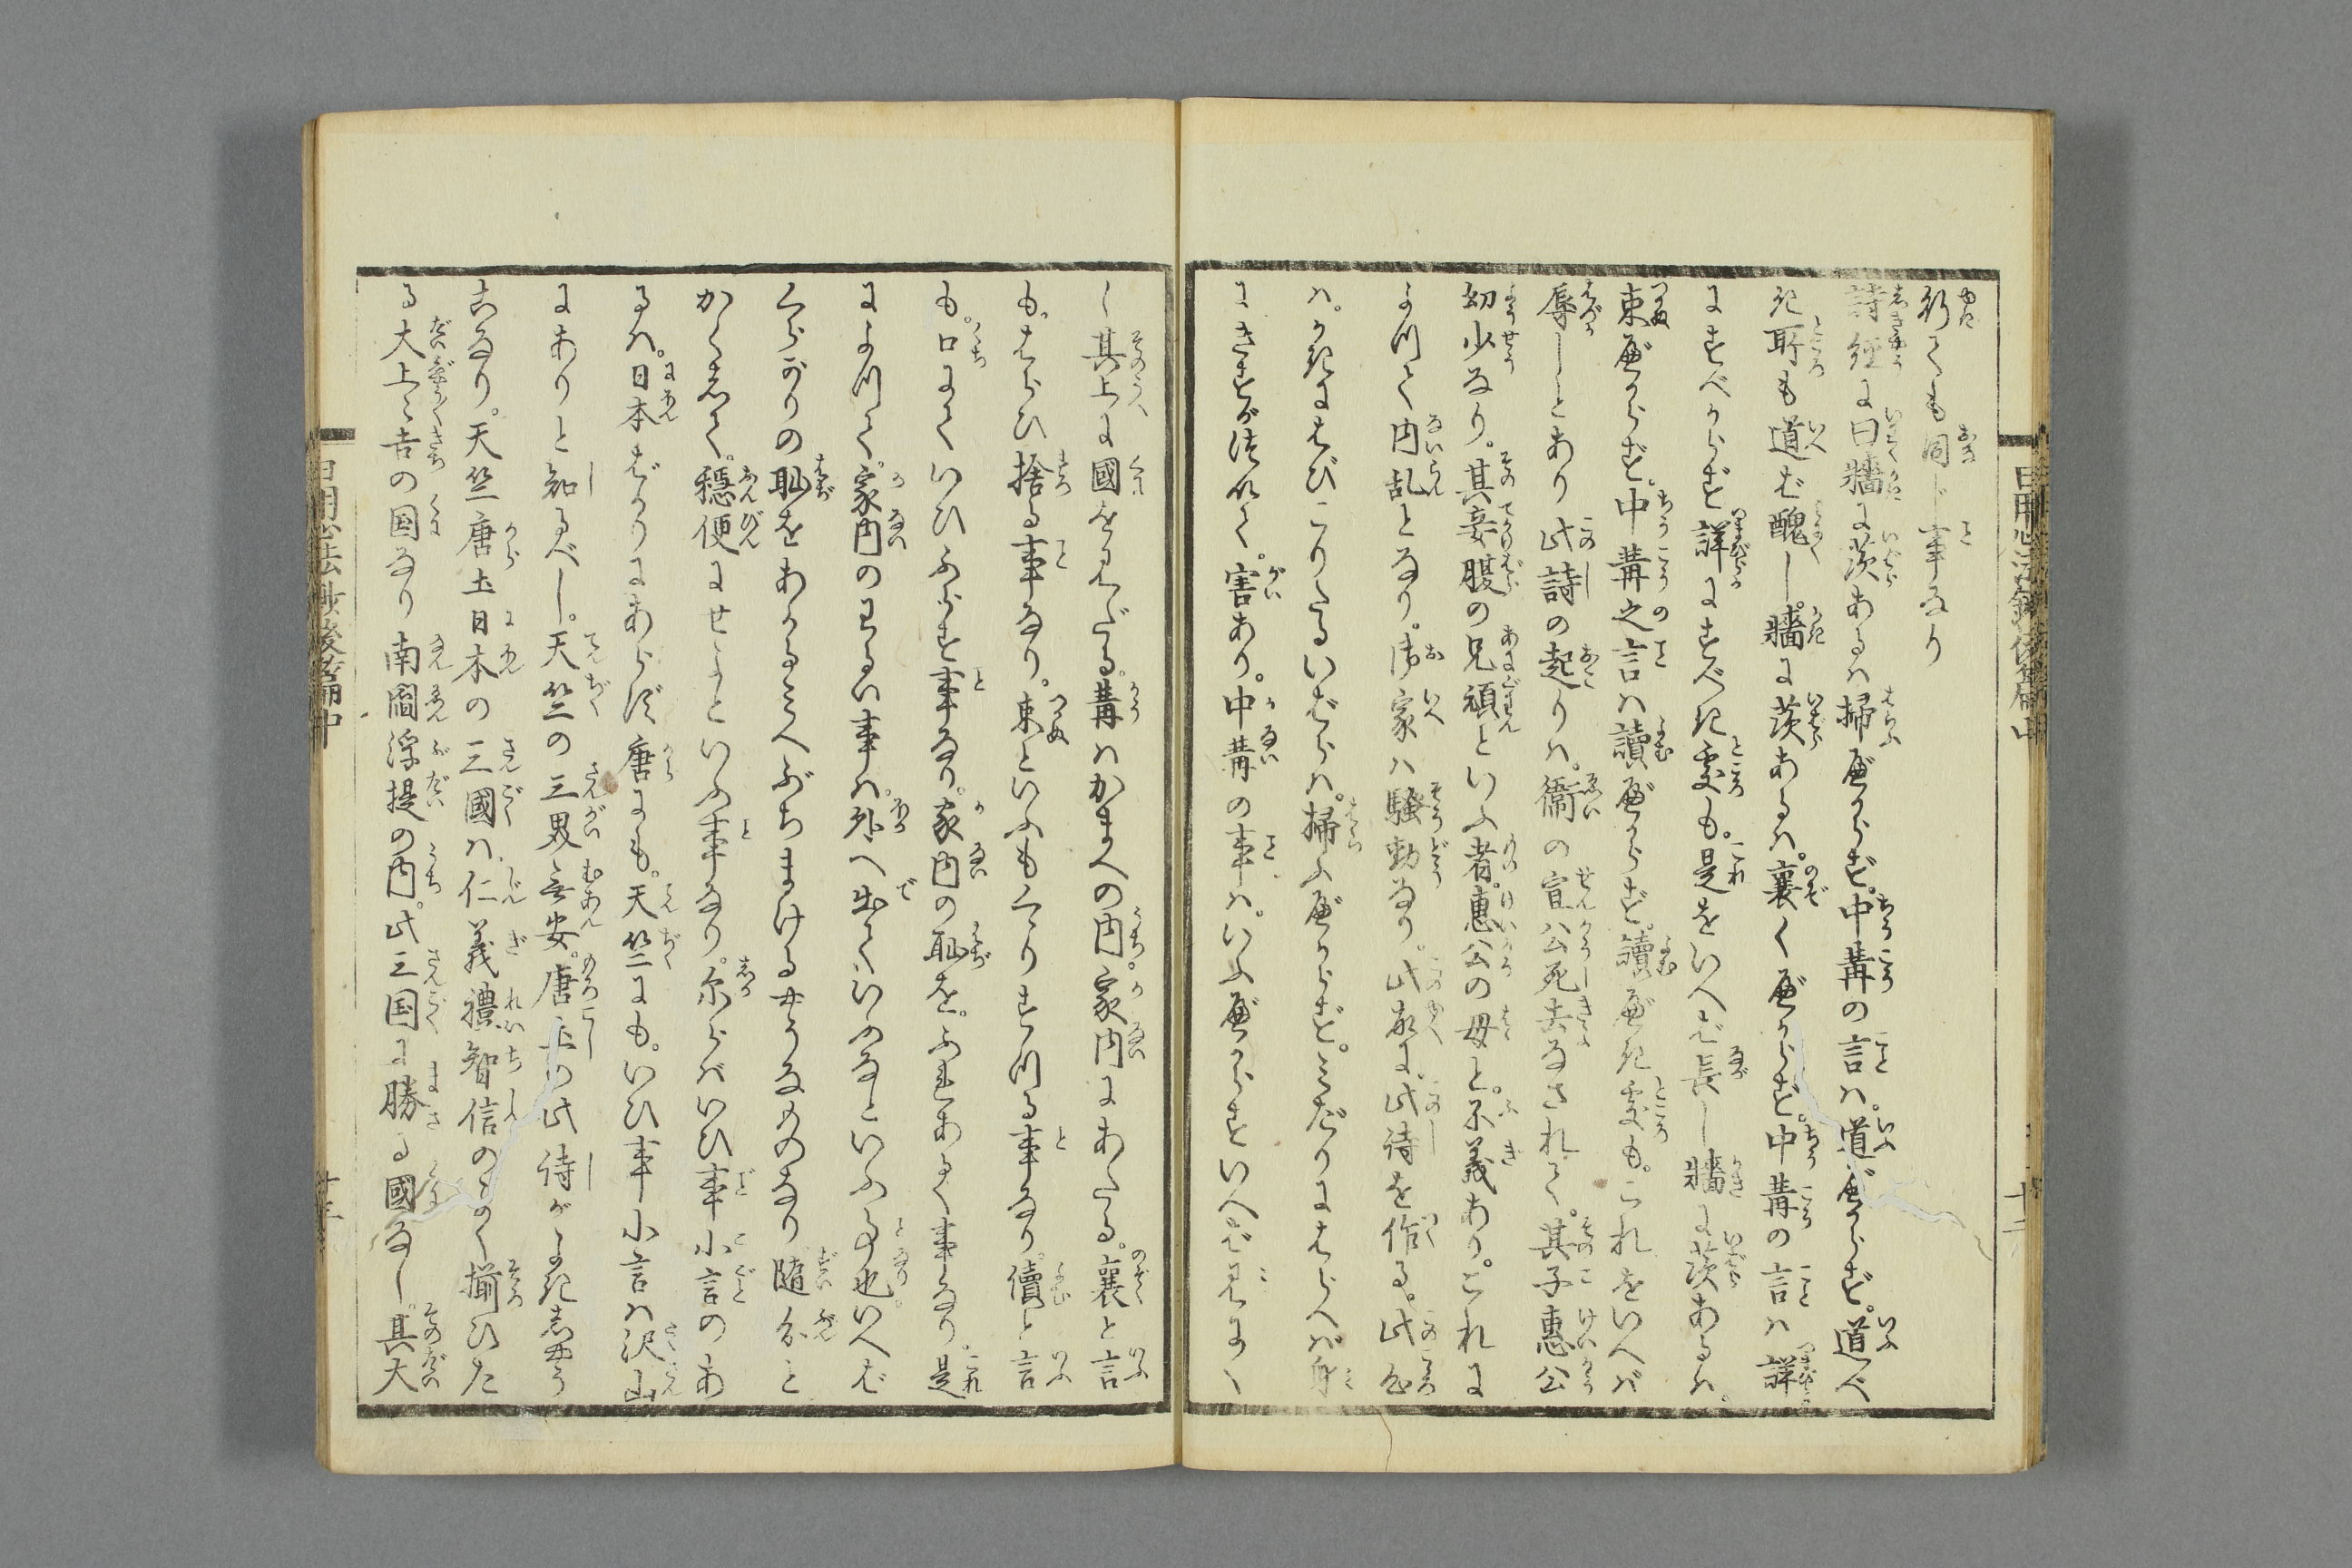 行ても同じ事なり
詩経に曰牆に茨あるハ掃べからず。中冓の言ハ。道べからず。道べ
き所も道ば醜し。牆に茨あるハ。襄くべからず。中冓の言ハ詳
にすべからず詳にすべき処も。是をいへば長し牆に茨あるハ。
束べからず。中冓之言ハ讀べからず。讀べき処も。これをいへバ
辱しとあり此詩の起りハ。衞の宣公死去なされて。其子惠公
幼少なり。其妾腹の兄頑といふ者。惠公の母と。不義あり。これに
よつて内乱となり。御家ハ騒動なり。此故に此詩を作る。此心
ハ。かきにはびこりたるいばらハ。掃ふべからず。みだりにはらへバ。身
にきずが付て。害あり。中冓の事ハ。いふべからずいへば見にく
し其上に國をみだる。冓ハかまへの内。家内にあたる。襄と言
も。はらひ捨る事なり。束といふもくゝりすつる事なり。讀と言
も。口にていひふらす事なり。家内の恥を。ふれあるく事なり。是
によつて。家内のわるい事ハ。外へ出ていふなといふ事也。いへば
くらがりの恥をあかるみへぶちまけるやうなものなり随分と
かくして。穏便にせよといふ事なり。尓らバいひ事小言のあ
るハ。日本ばかりにあらず唐にも。天竺にも。いひ事小言ハ沢山
にありと知るべし。天竺の三界無安。唐土の此詩がよきせう
こなり。天竺唐土日本の三國ハ。仁義禮智信のよく揃ひた
る大上々吉の国なり南閻浮提の内。此三国に勝る國なし。其大
日用心法鈔後篇中